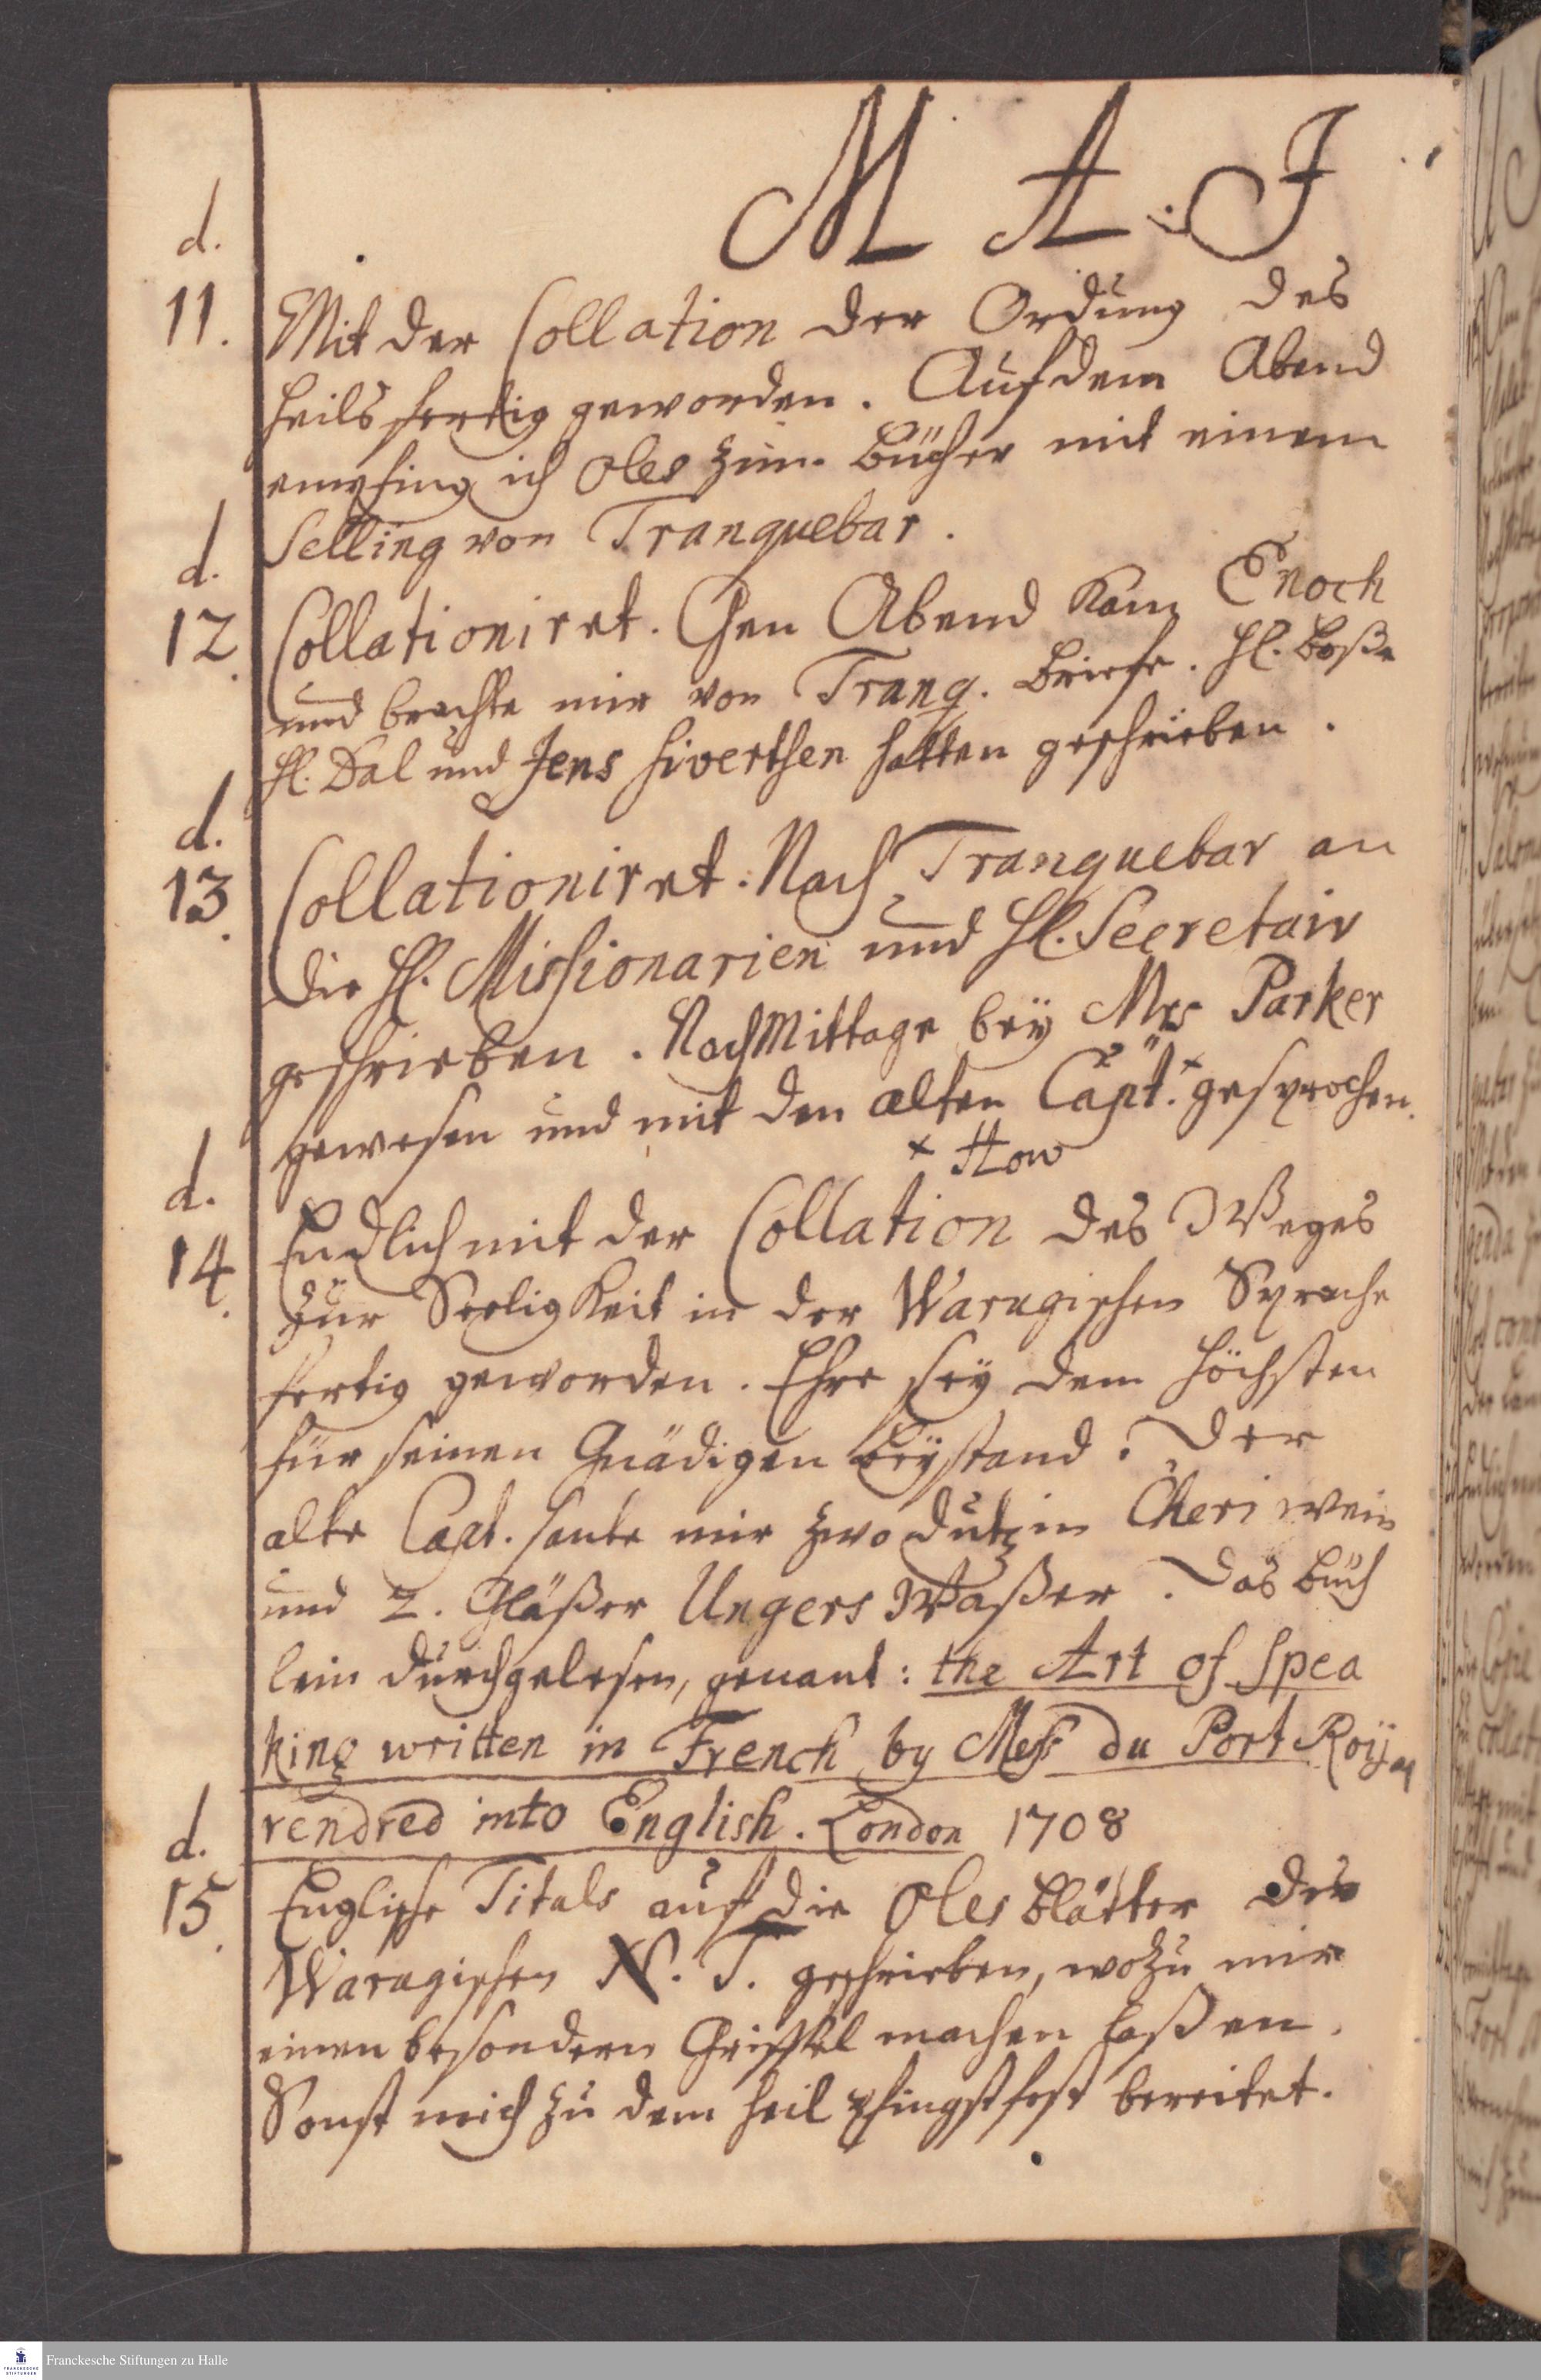 MAJ
d.
11. Mit der Collation der Ordnung des
Heils fertig geworden. Auf dem Abend
empfing ich Oles zum Bücher mit einem
Selling von Tranquebar.
d.
12. Collationiret. Gen Abend kam Enoch
und brachte mir von Tranq. Briefe. H. Boße
H. Dal und Jens Siverthsen hatten geschrieben.
d.
13. Collationiret. Nach Tranquebar an
die H. Missionarien und H. Secretair
geschrieben. NachMittage beÿ Mrs Parker
gewesen und mit den alten Capt. x gesprochen.
x How
d.
14. Endlich mit der Collation des Weges
zur Seeligkeit in der Warugischen Sprache
fertig geworden. Ehre seÿ dem Höchsten
für seinen Gnädigen Beÿstand. Der
alte Capt. sante mir zwo Dutzin Cheri wein
und 2. Gläßer Ungers Waßer. Das Büch
lein durchgelesen, genant: the Art of Spea
king written in French by Mess. du Port Roÿal
rendred into English. London 1708
d.
15. Englische Titals auf die Oles Blätter des
Warugischen N. T. geschrieben, wozu mir
einen besondern Griffel machen laßen.
Sonst mich zu dem Heil Pfingstfest bereitet.
FRANCKESCHE STIFTUNGEN
Franckesche Stiftungen zu Halle